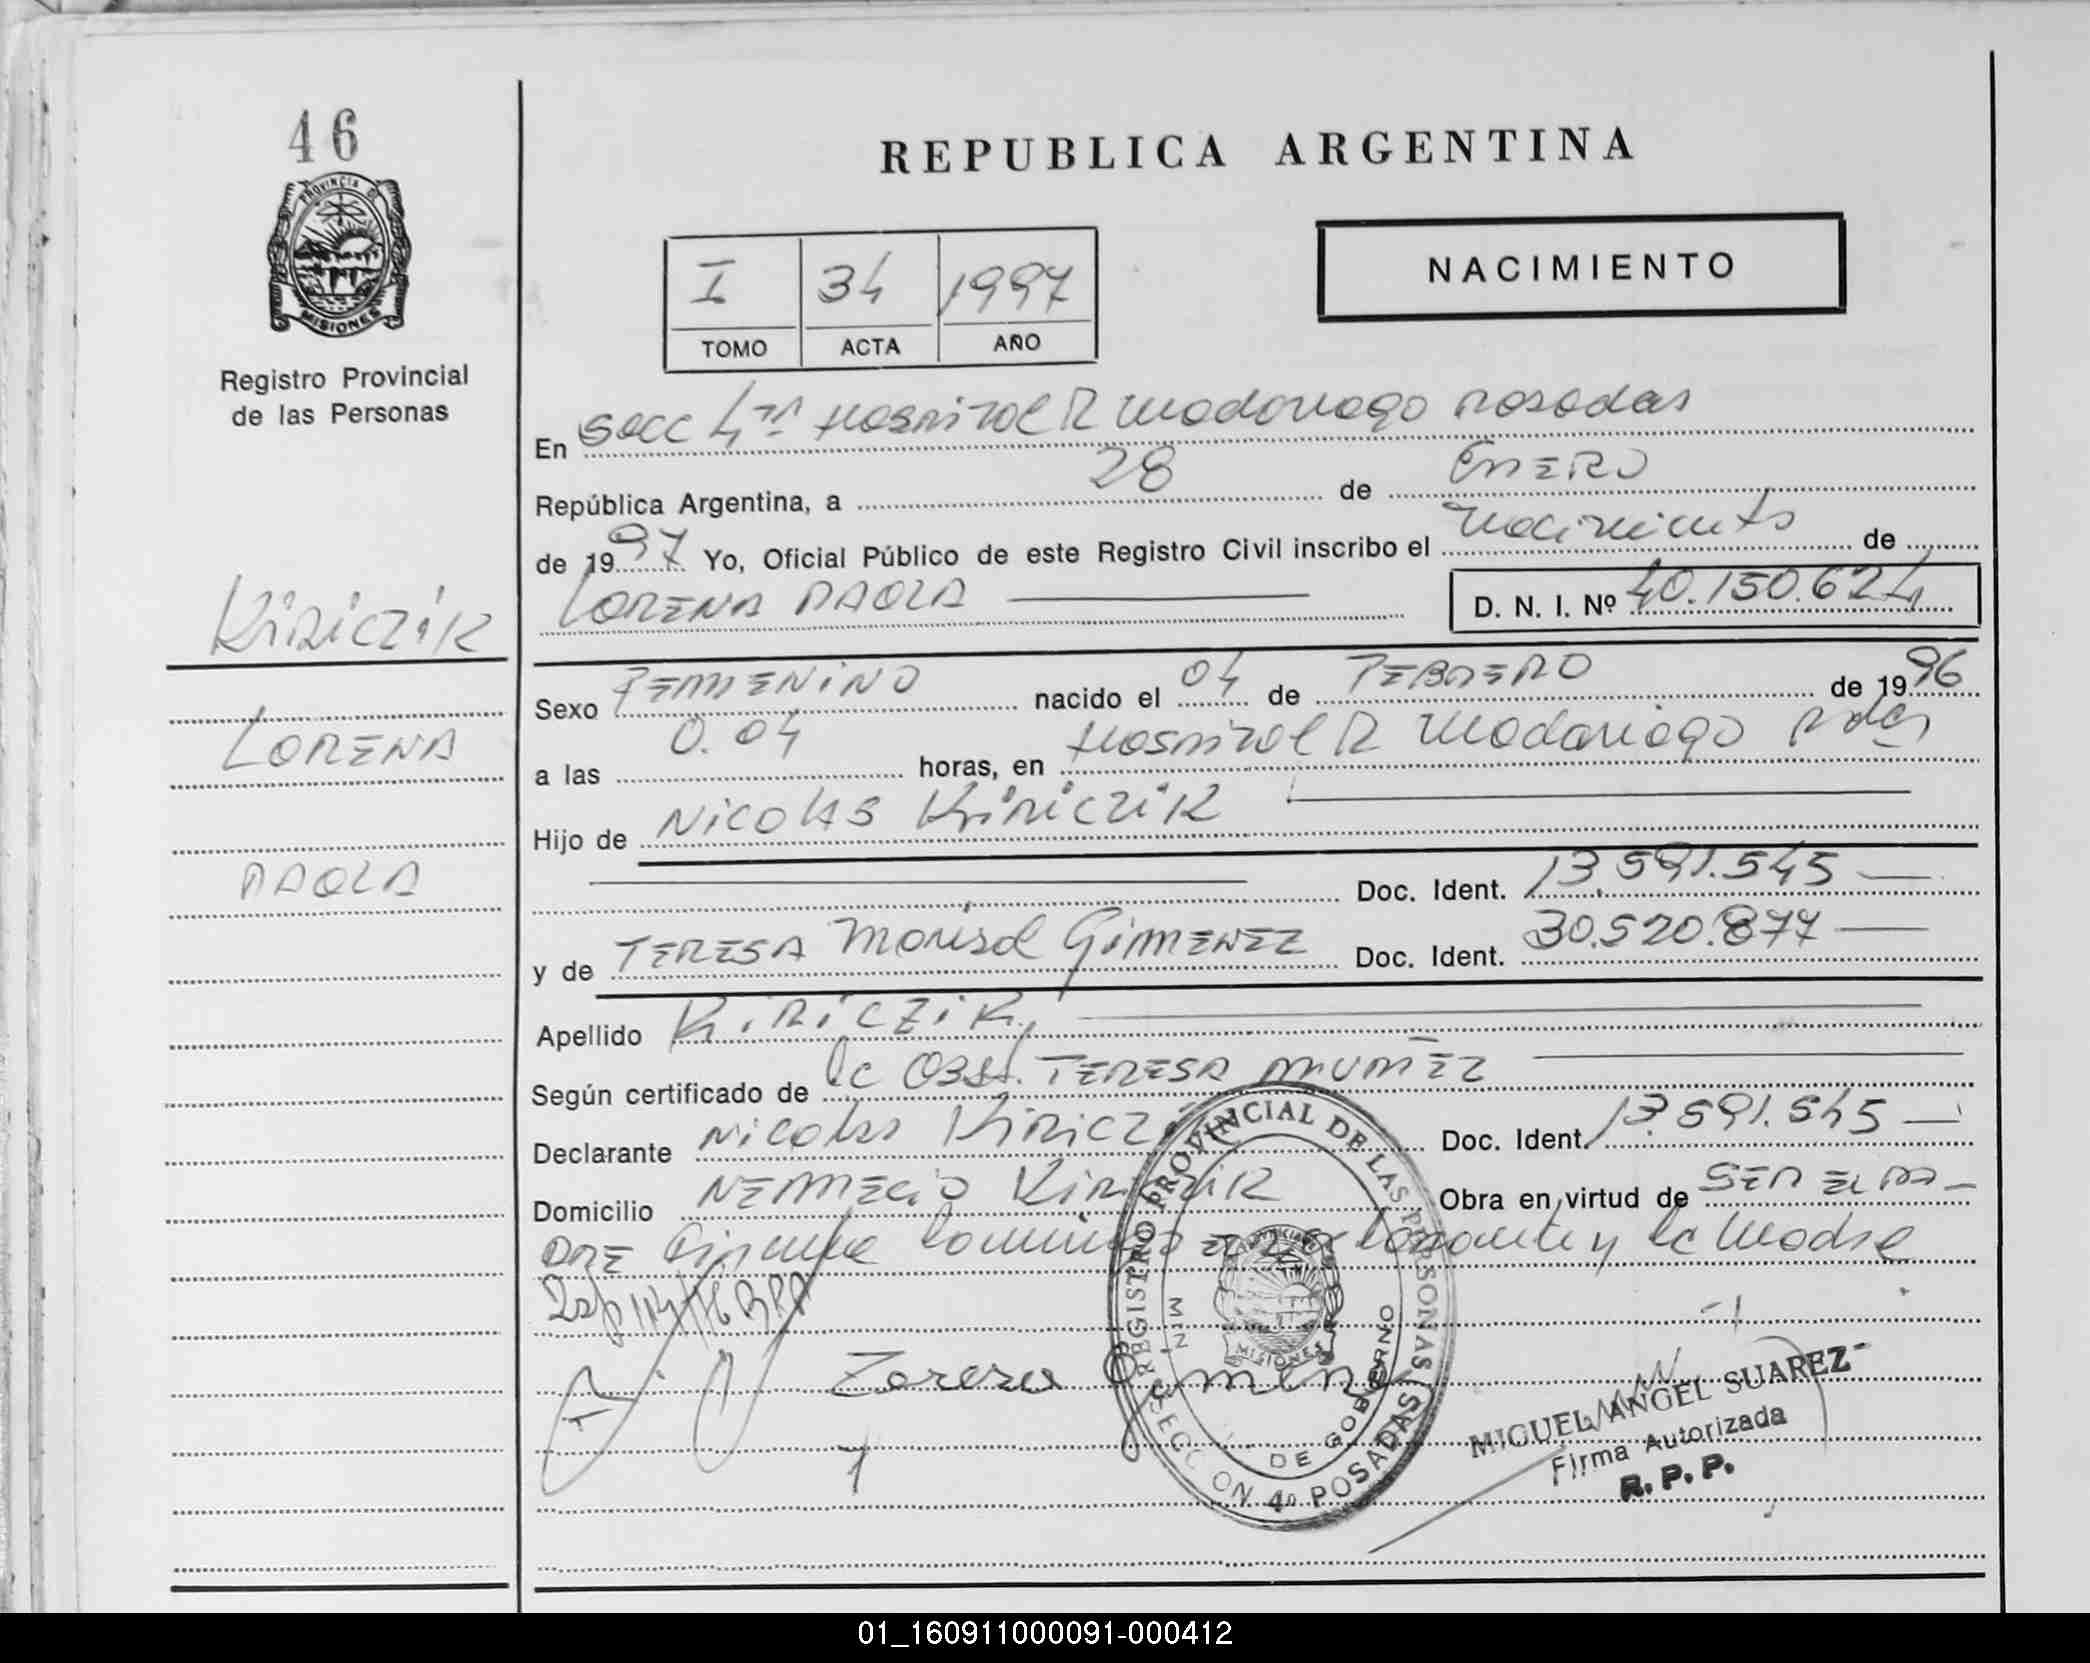 46
REPUBLICA ARGENTINA
PROVINCIA D
MISIONES
Registro Provincial
de las Personas
I 34 1997
TOMO ACTA AÑO
NACIMIENTO
En Secc 4ta Hospital R Madariaga Posadas
República Argentina, a 28 de ENERO
de 1997 Yo, Oficial Público de este Registro Civil inscribo el Nacimiento de
LORENA PAOLA D. N. I. Nº 40.150.624
KiRiCZiK
LORENA
PAOLA
Sexo FEMENINO nacido el 04 de FEBRERO de 1996
a las 0.04 horas, en Hospital R Madariaga Pdas
Hijo de NICOLAS KiRiCZiK
Doc. Ident. 13.591.545
y de TERESA Marisol GiMENEZ Doc. Ident. 30.520.877
Apellido KiRiCZiK
Según certificado de la Obst. TERESA MUÑEZ
Declarante Nicolas KiRiCZ Doc. Ident. 13.591.545
Domicilio NEMMECiO KiRiCZiK Obra en virtud de SER EL PA-
DRE y la Madre
Gimenez
REGISTRO PROVINCIAL DE LAS PERSONAS
MIN. DE GOBIERNO
MISIONES
SECCION 4a POSADAS
MIGUEL ANGEL SUAREZ
Firma Autorizada
R. P. P.
01_160911000091-000412